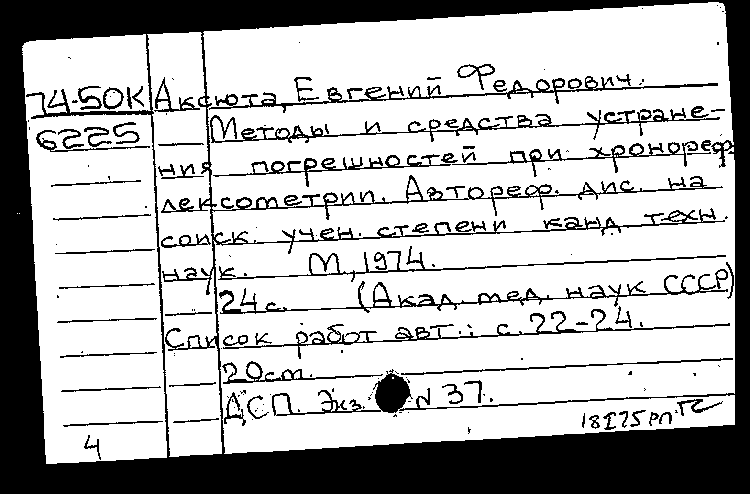 74-50К Аксюта, Евгений Федорович.
6225 Методы и средства устране-
ния погрешностей при хронореф-
лексометрии. Автореф. дис. на
соиск. учен. степени канд техн.
наук. М., 1974.
24с. (Акад. мед. наук СССР)
Список работ авт.: с. 22-24.
20см.
ДСП. Экз. N 37.
4